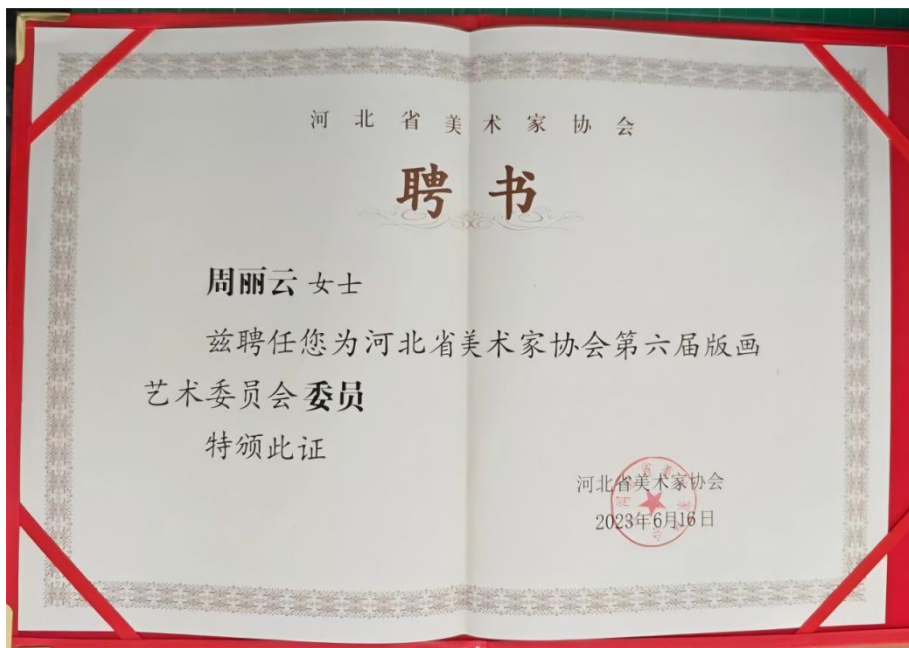 河北省美术家协会
聘书
周丽云 女士
兹聘任您为河北省美术家协会第六届版画
艺术委员会 委员
特颁此证
河北省美术家协会
2023年6月16日